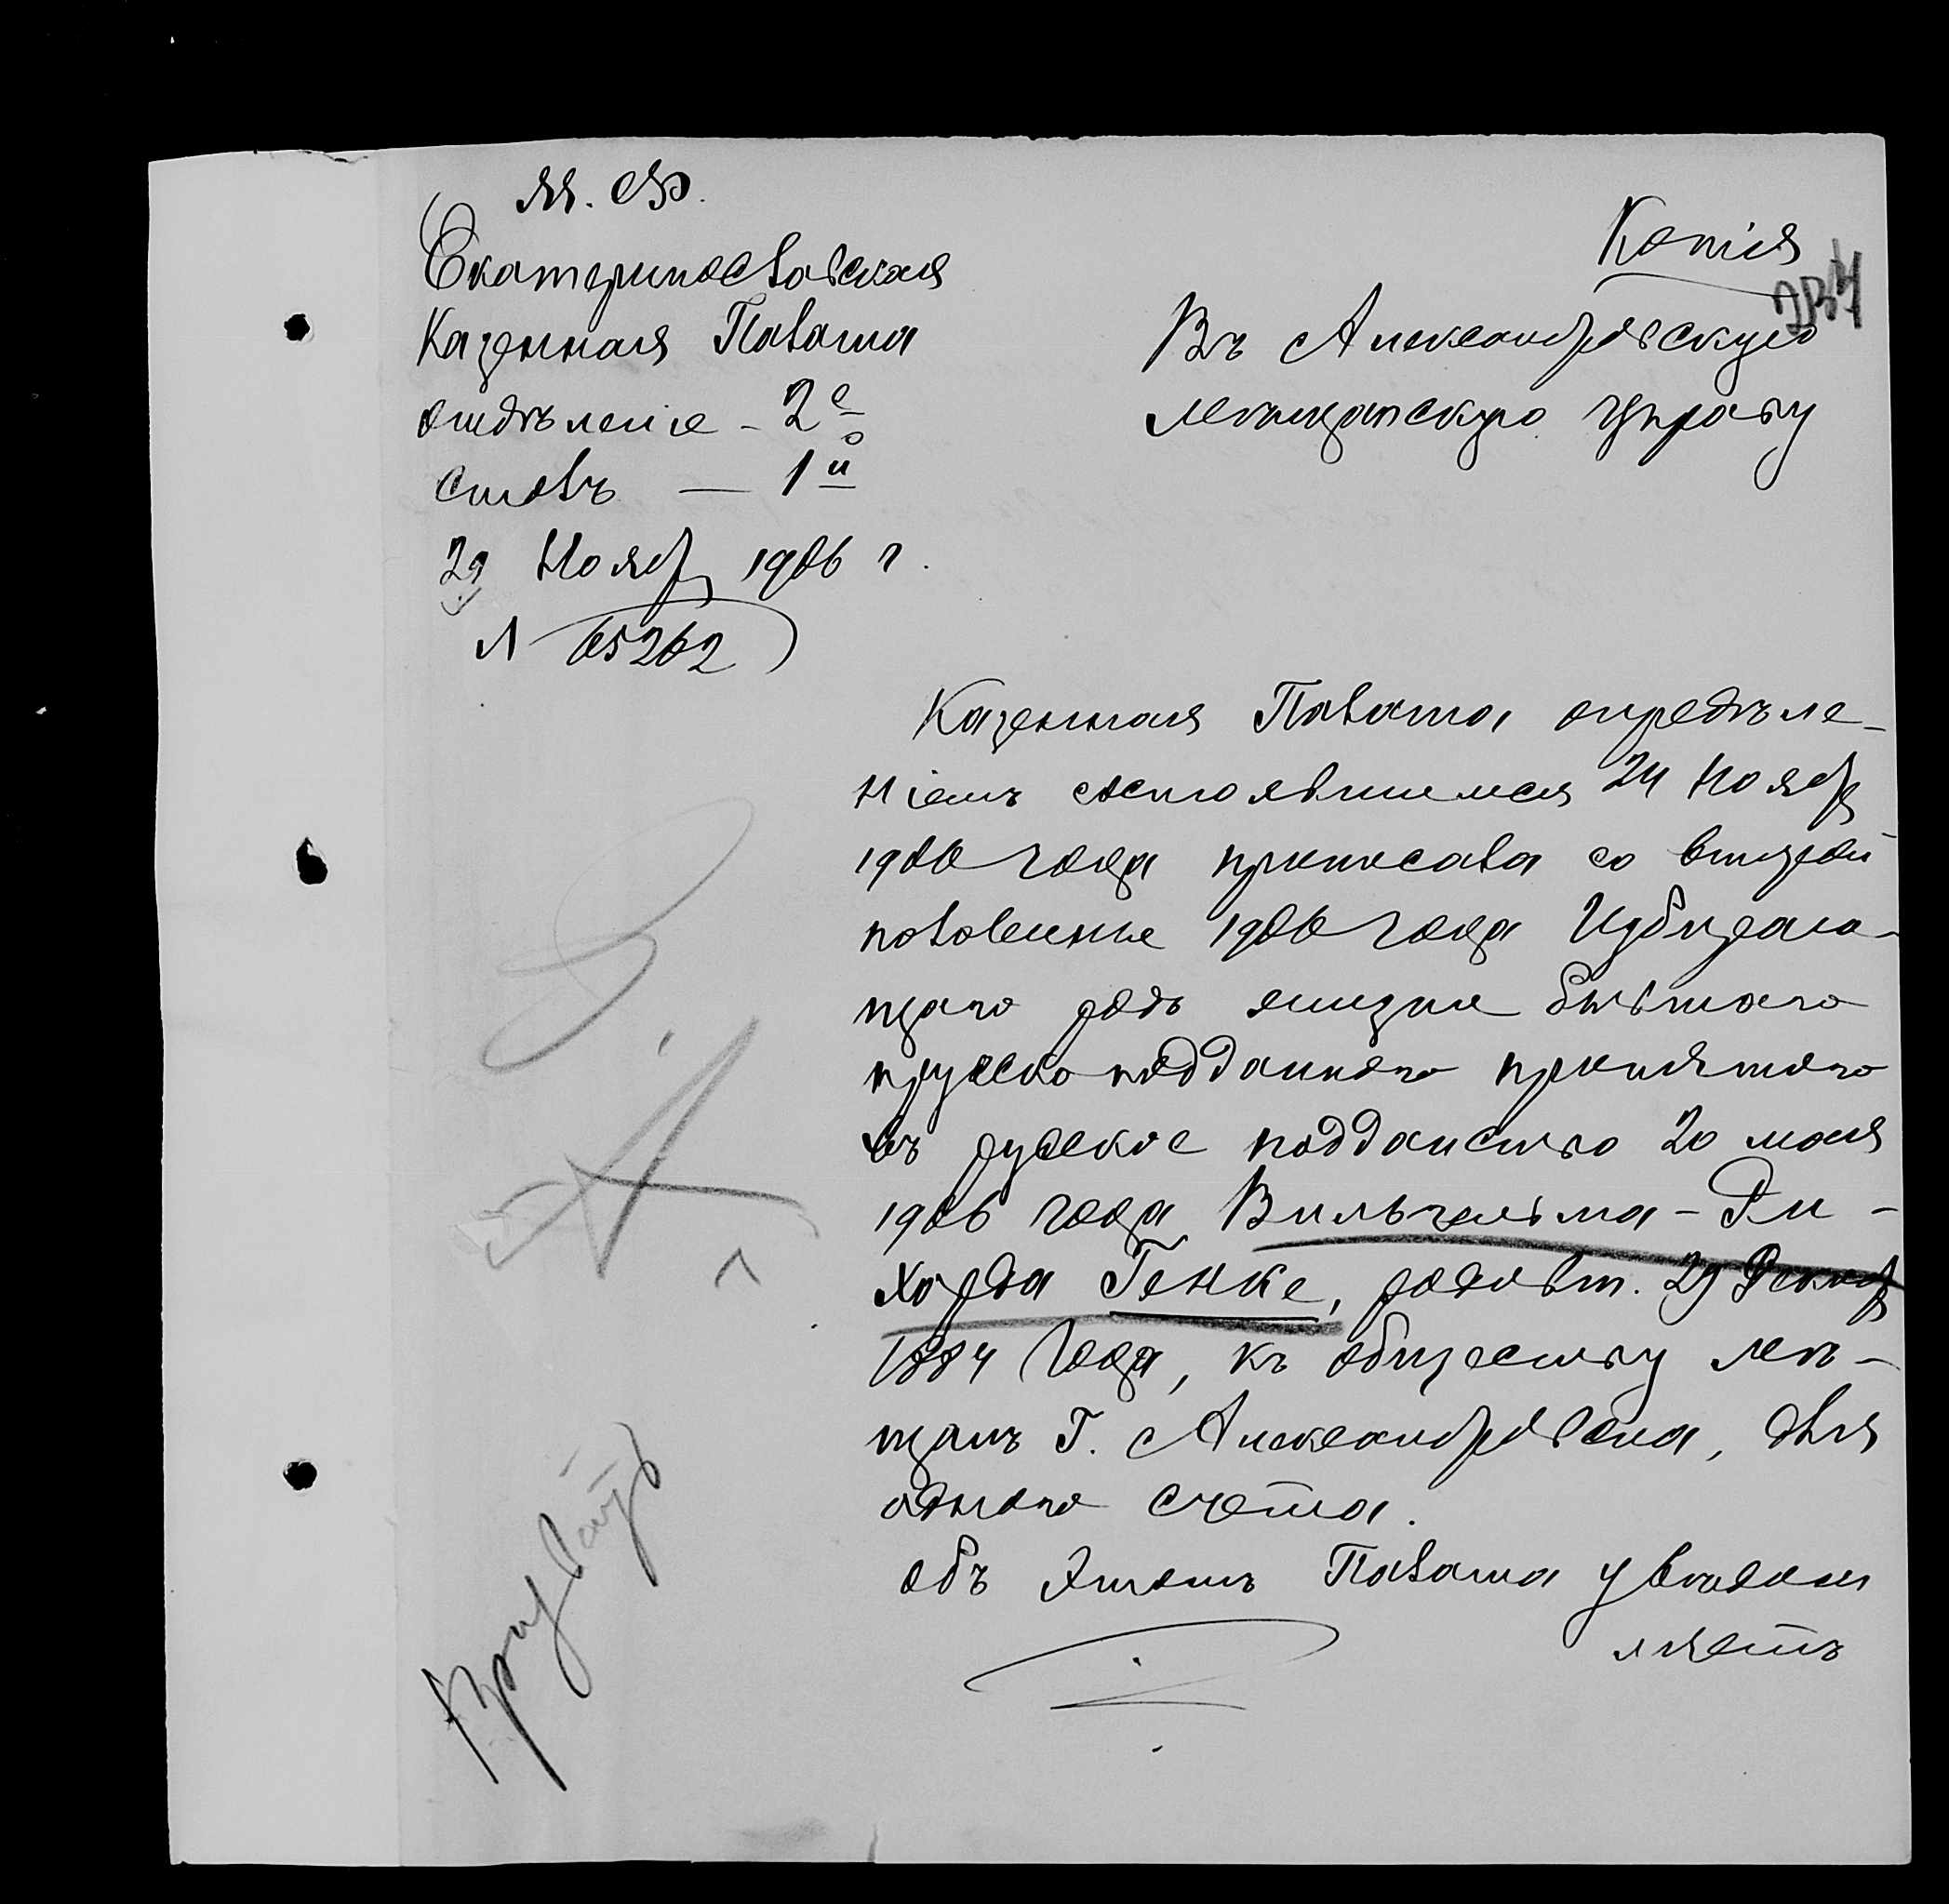 М. Ф.
Екатеринославская
Казенная Палата
отдѣленіе - 2е
столъ — 1й
29 Ноябр 1906 г.
№ 65262
Копія
Въ Александровскую
мещанскую управу
Казенная Палата опредѣле-
ніемъ состоявшимся 24 Ноябр
1906 года приписала со второй
половины 1906 года Избираю-
щаго родъ жизни бывшаго
прусско подданнаго принятаго
въ русское подданство 20 мая
1906 года Вильгельма - Ри -
харда Генке, родивш. 29 Декабр
1884 года, къ обществу мѣ-
щанъ г. Александровска, для
однаго счета.
объ этомъ Палата увѣдом
ляетъ